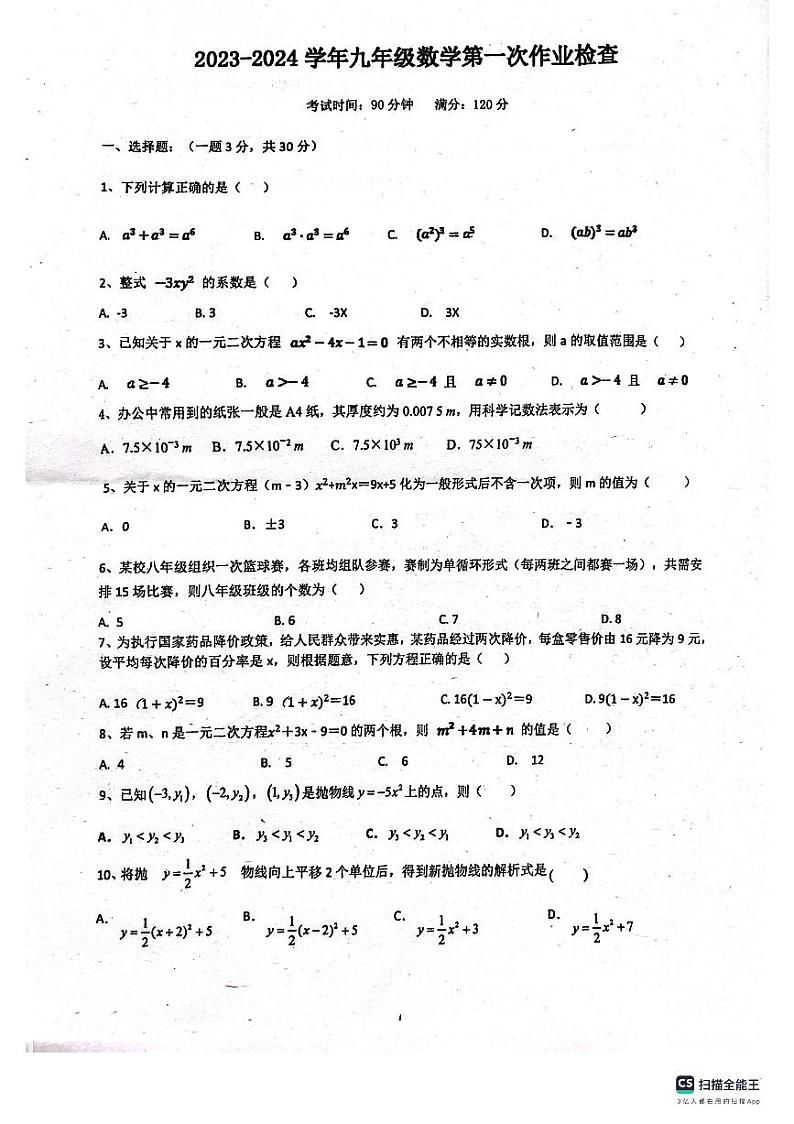 2023-2024 学年九年级数学第一次作业检查
考试时间：90 分钟 满分：120 分
一、选择题：（一题 3 分，共 30 分）
1、下列计算正确的是（ ）
A. a³+a³=a⁶ B. a³·a³=a⁶ C. (a²)³=a⁵ D. (ab)³=ab³
2、整式 −3xy² 的系数是（ ）
A. -3 B. 3 C. -3X D. 3X
3、已知关于 x 的一元二次方程 ax²−4x−1=0 有两个不相等的实数根，则 a 的取值范围是（ ）
A. a≥−4 B. a>−4 C. a≥−4 且 a≠0 D. a>−4 且 a≠0
4、办公中常用到的纸张一般是 A4 纸，其厚度约为 0.007 5 m，用科学记数法表示为（ ）
A. 7.5×10⁻³ m B. 7.5×10⁻² m C. 7.5×10³ m D. 75×10⁻³ m
5、关于 x 的一元二次方程（m﹣3）x²+m²x＝9x+5 化为一般形式后不含一次项，则 m 的值为（ ）
A. 0 B. ±3 C. 3 D. ﹣3
6、某校八年级组织一次篮球赛，各班均组队参赛，赛制为单循环形式（每两班之间都赛一场），共需安
排 15 场比赛，则八年级班级的个数为（ ）
A. 5 B. 6 C. 7 D. 8
7、为执行国家药品降价政策，给人民群众带来实惠，某药品经过两次降价，每盒零售价由 16 元降为 9 元，
设平均每次降价的百分率是 x，则根据题意，下列方程正确的是（ ）
A. 16（1+x)²=9 B. 9（1+x)²=16 C. 16(1−x)²=9 D. 9(1−x)²=16
8、若 m、n 是一元二次方程x²＋3x﹣9＝0 的两个根，则 m²+4m+n 的值是（ ）
A. 4 B. 5 C. 6 D. 12
9、已知(−3,y₁)，(−2,y₂)，(1,y₃)是抛物线 y=−5x² 上的点，则（ ）
A. y₁<y₂<y₃ B. y₃<y₁<y₂ C. y₃<y₂<y₁ D. y₁<y₃<y₂
10、将抛 y=1/2x²+5 物线向上平移 2 个单位后，得到新抛物线的解析式是( )
A. y=1/2(x+2)²+5 B. y=1/2(x−2)²+5 C. y=1/2x²+3 D. y=1/2x²+7
1
CS 扫描全能王
3亿人都在用的扫描App